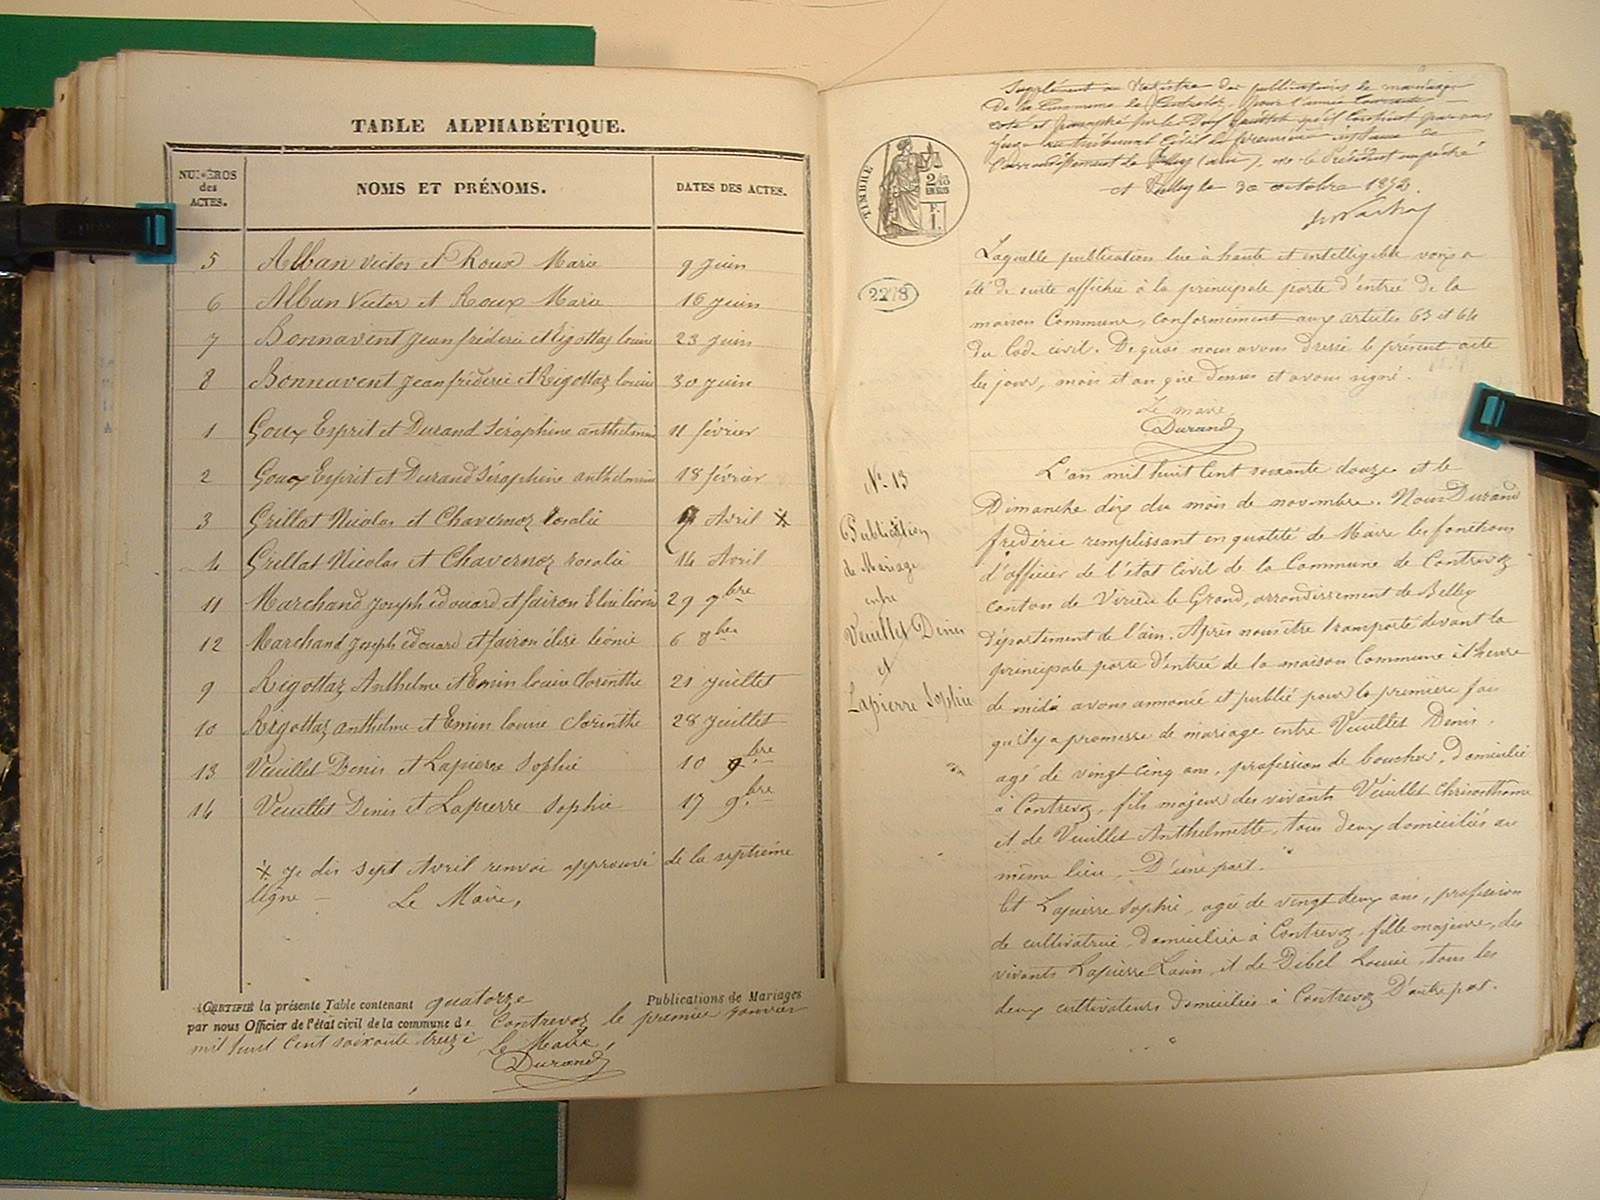 TABLE ALPHABÉTIQUE.
NUMÉROS des ACTES.
NOMS ET PRÉNOMS.
DATES DES ACTES.
5 Alban Victor et Roux Marie 9 Juin
6 Alban Victor et Roux Marie 16 Juin
7 Bonnavent Jean frédéric et Rigottaz louise 23 Juin
8 Bonnavent Jean frédéric et Rigottaz louise 30 Juin
1 Goux Esprit et Durand Séraphine anthelmine 11 février
2 Goux Esprit et Durand Séraphine anthelmine 18 février
3 Grillat Nicolas et Chavernoz Rosalie 7 Avril *
4 Grillat Nicolas et Chavernoz rosalie 14 Avril
11 Marchand Joseph édouard et fairon Elise léonie 29 7bre
12 Marchand Joseph édouard et fairon élise léonie 6 8bre
9 Rigottaz Anthelme et Emin louise Corinthe 21 Juillet
10 Rigottaz anthelme et Emin louise Corinthe 28 Juillet
13 Veuillet Denis et Lapierre Sophie 10 9bre
14 Veuillet Denis et Lapierre Sophie 17 9bre
* Je dis sept Avril renvoi approuvé de la septième
ligne – Le Maire,
CERTIFIÉ la présente Table contenant quatorze Publications de Mariages
par nous Officier de l'état civil de la commune de Contrevoz le premier Janvier
mil huit Cent soixante treize Le Maire,
Durand
Supplément au Registre des publications de mariages
De la Commune de Contrevoz pour l'année Courante
coté et paraphé par
Juge au tribunal Civil de première instance de
l'arrondissement de Belley (ain), le Président empêché
à Belley le 30 octobre 1872.
TIMBRE
2278
Laquelle publication lue à haute et intelligible voix a
été de suite affichée à la principale porte d'entrée de la
maison Commune, conformément aux articles 63 et 64
du Code civil. De quoi nous avons dressé le présent acte
les jour, mois et an que dessus et avons signé.
Le maire,
Durand
N° 13
Publication
de Mariage
entre
Veuillet Denis
et
Lapierre Sophie
L'an mil huit Cent soixante douze et le
Dimanche dix du mois de novembre. Nous Durand
frédéric remplissant en qualité de Maire les fonctions
d'officier de l'état Civil de la Commune de Contrevoz
canton de Virieu le Grand, arrondissement de Belley
département de l'ain. Après nous être transporté devant la
principale porte d'entrée de la maison Commune à l'heure
de midi avons annoncé et publié pour la première fois
qu'il y a promesse de mariage entre Veuillet Denis,
agé de vingt Cinq ans, profession de boucher, domicilié
à Contrevoz, fils majeur des vivants Veuillet Chrisosthome
et de Veuillet Anthelmette, tous deux domiciliés au
même lieu, D'une part.
Et Lapierre Sophie, agée de vingt deux ans, profession
de cultivatrice, domiciliée à Contrevoz, fille majeure, des
vivants Lapierre et de Dibel Louise, tous les
deux cultivateurs domiciliés à Contrevoz D'autre part.